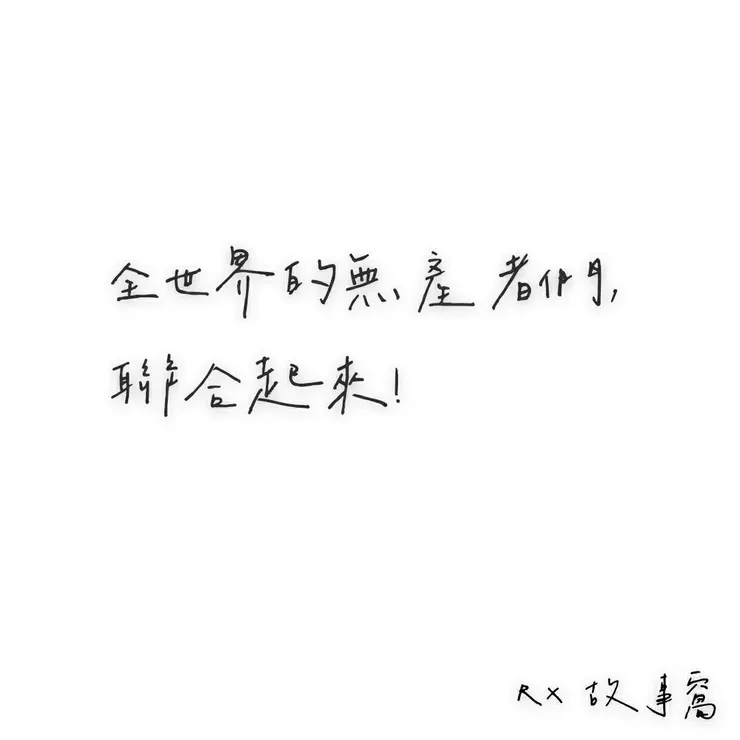 全世界的無產者們,
聯合起來!
RX 故事窩